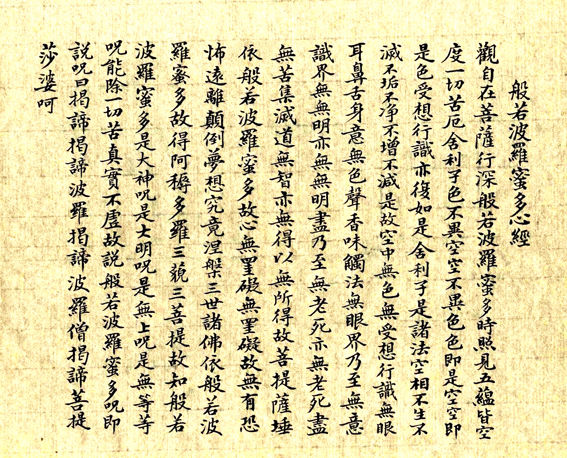 般若波羅蜜多心經
觀自在菩薩行深般若波羅蜜多時照見五蘊皆空
度一切苦厄舍利子色不異空空不異色色即是空空即
是色受想行識亦復如是舍利子是諸法空相不生不
滅不垢不净不增不減是故空中無色無受想行識無眼
耳鼻舌身意無色聲香味觸法無眼界乃至無意
識界無無明亦無無明盡乃至無老死亦無老死盡
無苦集滅道無智亦無得以無所得故菩提薩埵
依般若波羅蜜多故心無罣礙無罣礙故無有恐
怖遠離顛倒夢想究竟涅槃三世諸佛依般若波
羅蜜多故得阿耨多羅三藐三菩提故知般若
波羅蜜多是大神呪是大明呪是無上呪是無等等
呪能除一切苦真實不虛故説般若波羅蜜多呪即
説呪曰揭諦揭諦波羅揭諦波羅僧揭諦菩提
莎婆呵